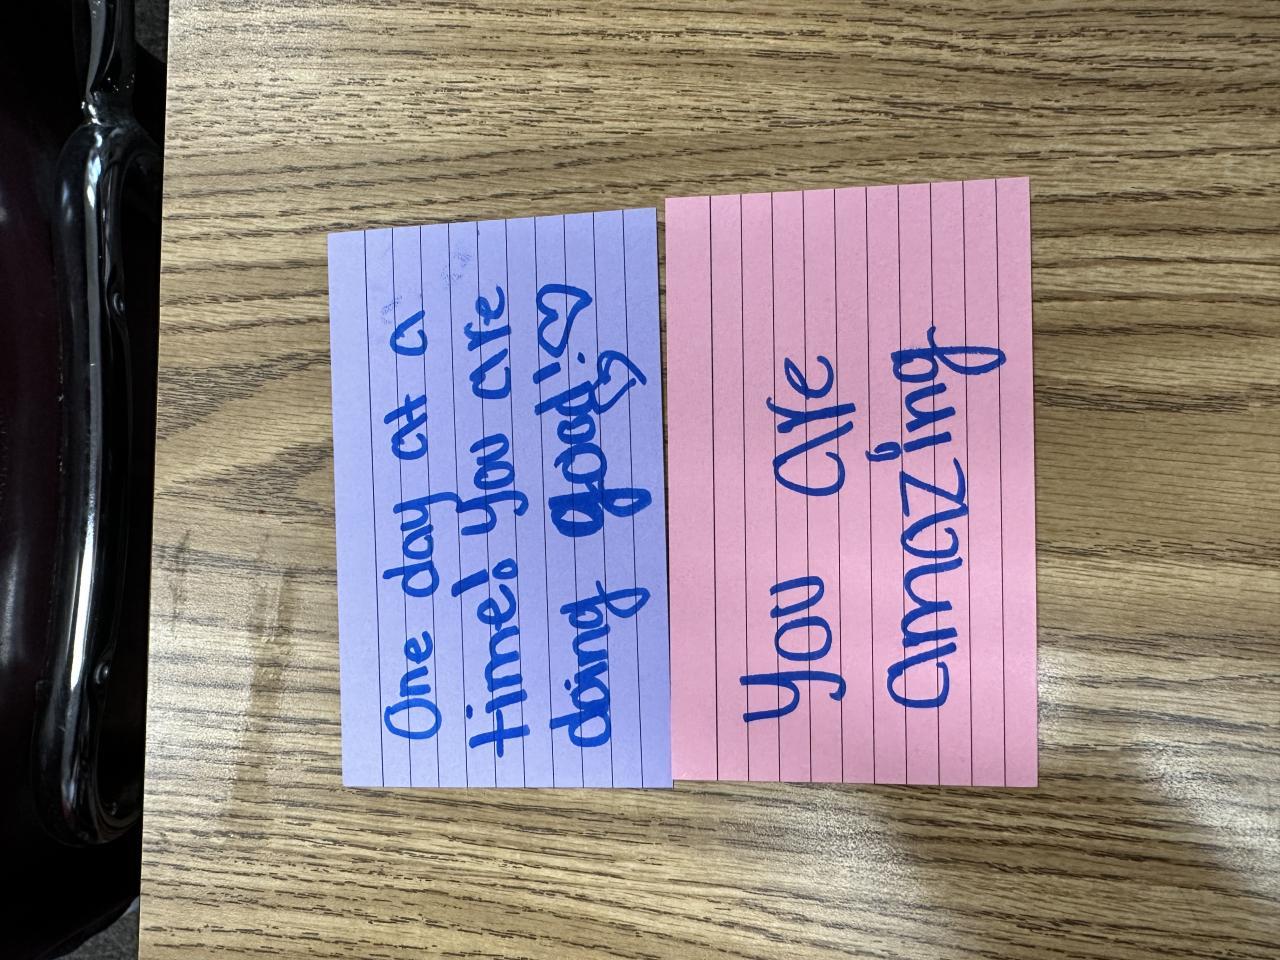 One day at a
time! you are
doing good! ♡♡
you are
amazing